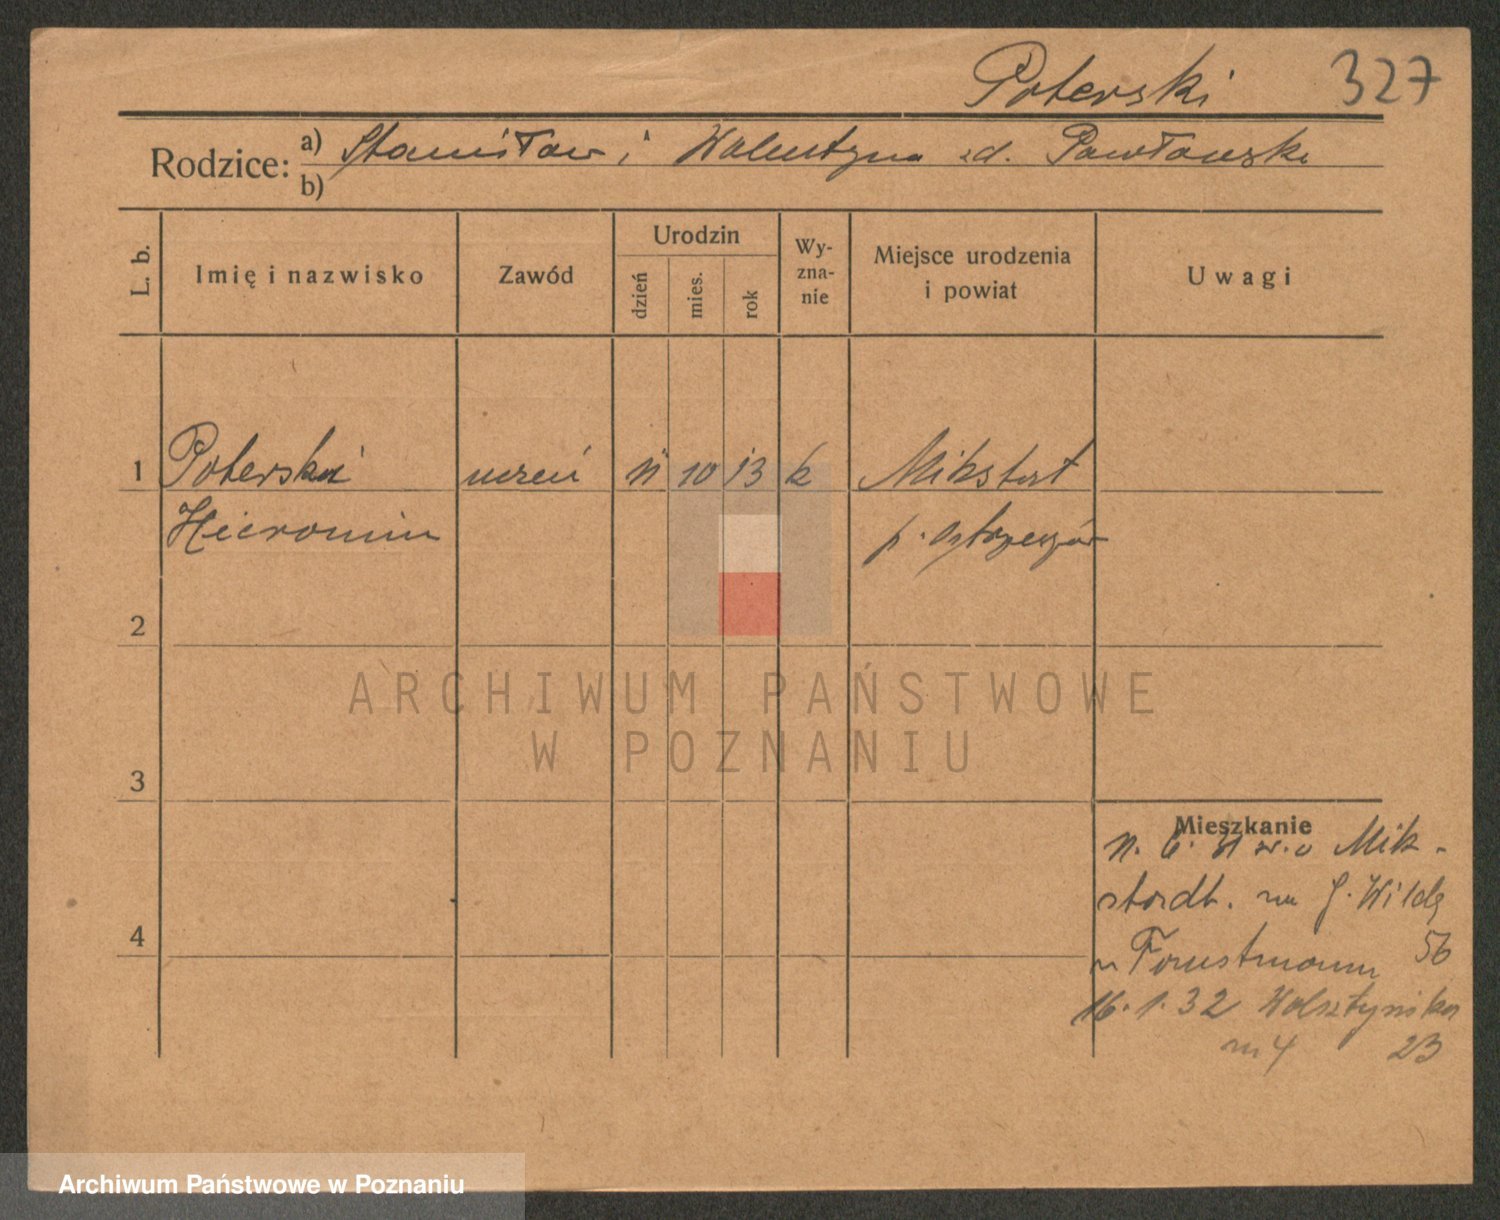 Poterski 327
Rodzice: a) Stanisław i Walentyna zd. Pawłowska
b)
L. b. Imię i nazwisko Zawód Urodzin dzień mies. rok Wyznanie Miejsce urodzenia i powiat Uwagi
1 Poterski uczeń 11 10 13 k Mikstat
Hieronim p. Ostrzeszów
2
ARCHIWUM PAŃSTWOWE
W POZNANIU
3
Mieszkanie
Mik-
na G. Wildę
4
56
16. 1. 32 Wolsztyńska
m 4 23
Archiwum Państwowe w Poznaniu